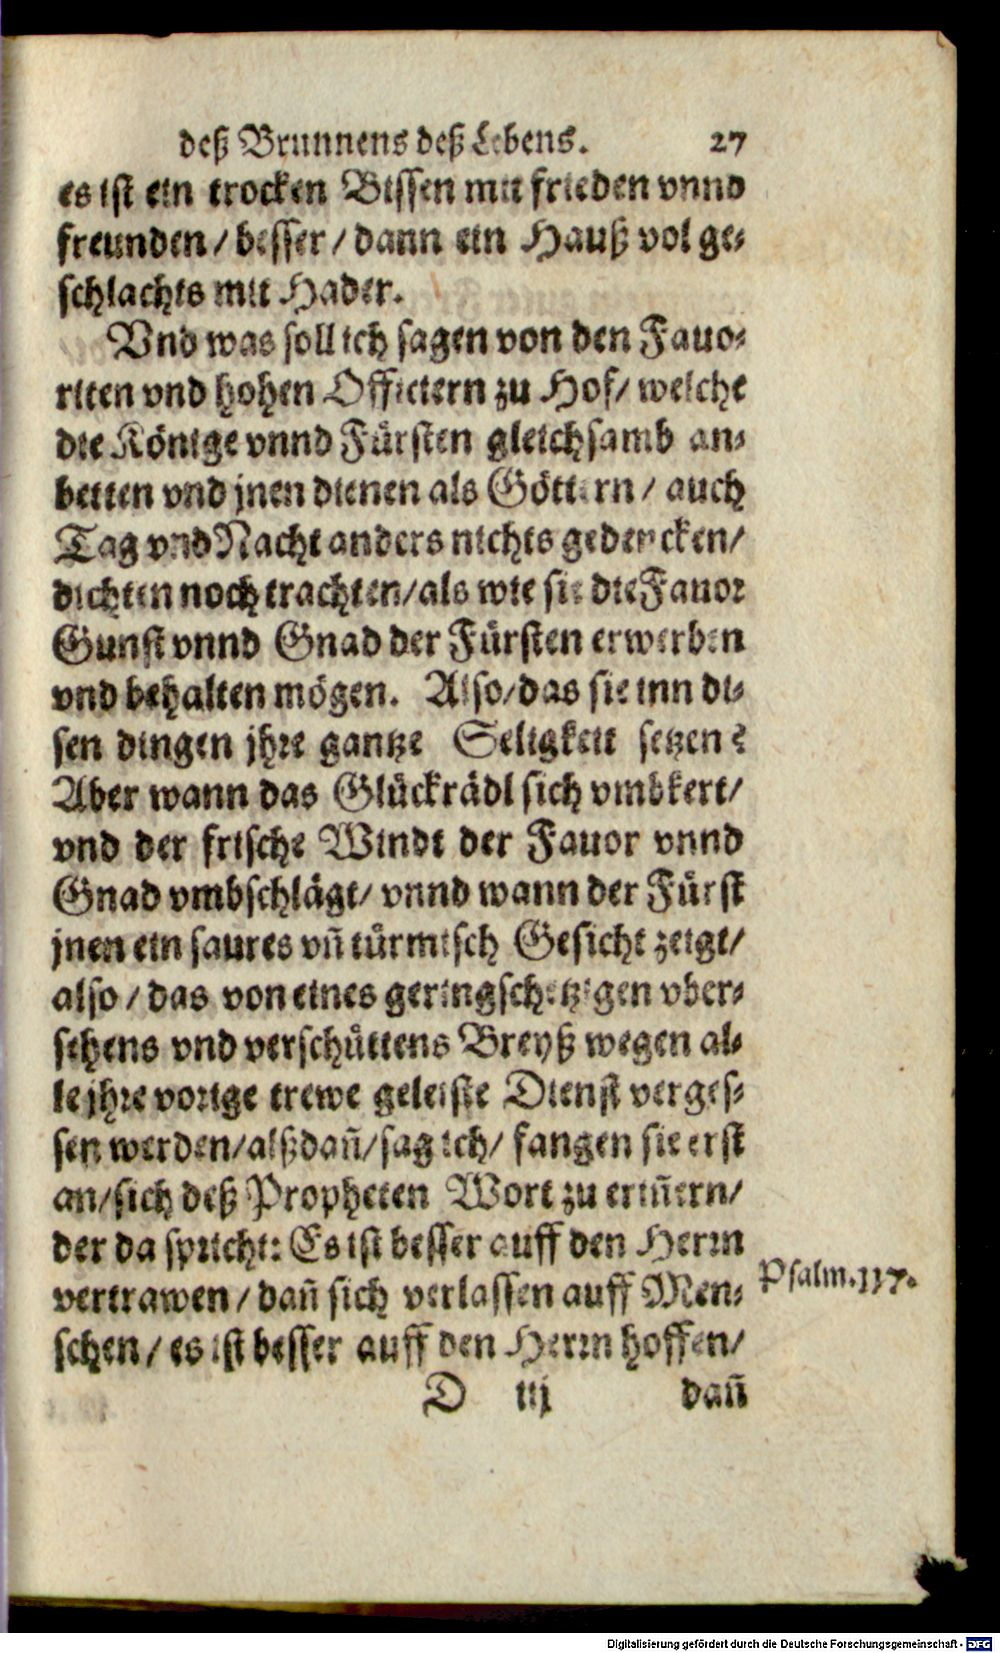 deß Brunnens deß Lebens. 27
es ist ein trocken Bissen mit frieden vnnd
freunden / besser / dann ein Hauß vol ge-
schlachts mit Hader.
Vnd was soll ich sagen von den Fauo-
riten vnd hohen Officiern zu Hof / welche
die Könige vnnd Fürsten gleichsamb an-
betten vnd jnen dienen als Göttern / auch
Tag vnd Nacht anders nichts gedencken /
dichten noch trachten / als wie sie die Fauor
Gunst vnnd Gnad der Fürsten erwerben
vnd behalten mögen. Also / das sie inn di-
sen dingen jhre gantze Seligkeit setzen?
Aber wann das Glückrädl sich vmbkert /
vnd der frische Windt der Fauor vnnd
Gnad vmbschlägt / vnnd wann der Fürst
jnen ein saures vñ türmisch Gesicht zeigt /
also / das von eines geringschetzigen vber-
sehens vnd verschüttens Breyß wegen al-
le jhre vorige trewe geleiste Dienst verges-
sen werden / alßdañ / sag ich / fangen sie erst
an / sich deß Propheten Wort zu eriñern /
der da spricht: Es ist besser auff den Herrn
vertrawen / dañ sich verlassen auff Men-
schen / es ist besser auff den Herrn hoffen /
Psalm. 117.
D iij dañ
Digitalisierung gefördert durch die Deutsche Forschungsgemeinschaft - DFG